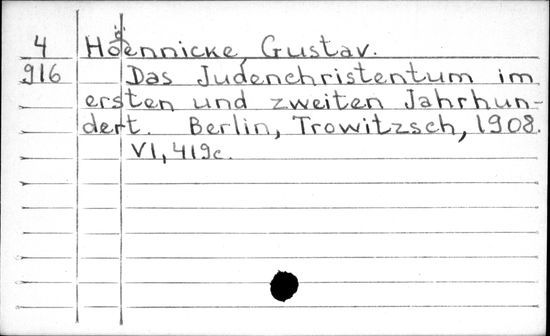 4 Hoennicke, Gustav.
916 Das Judenchristentum im
ersten und zweiten Jahrhun-
dert. Berlin, Trowitzsch, 1908.
VI, 419c.